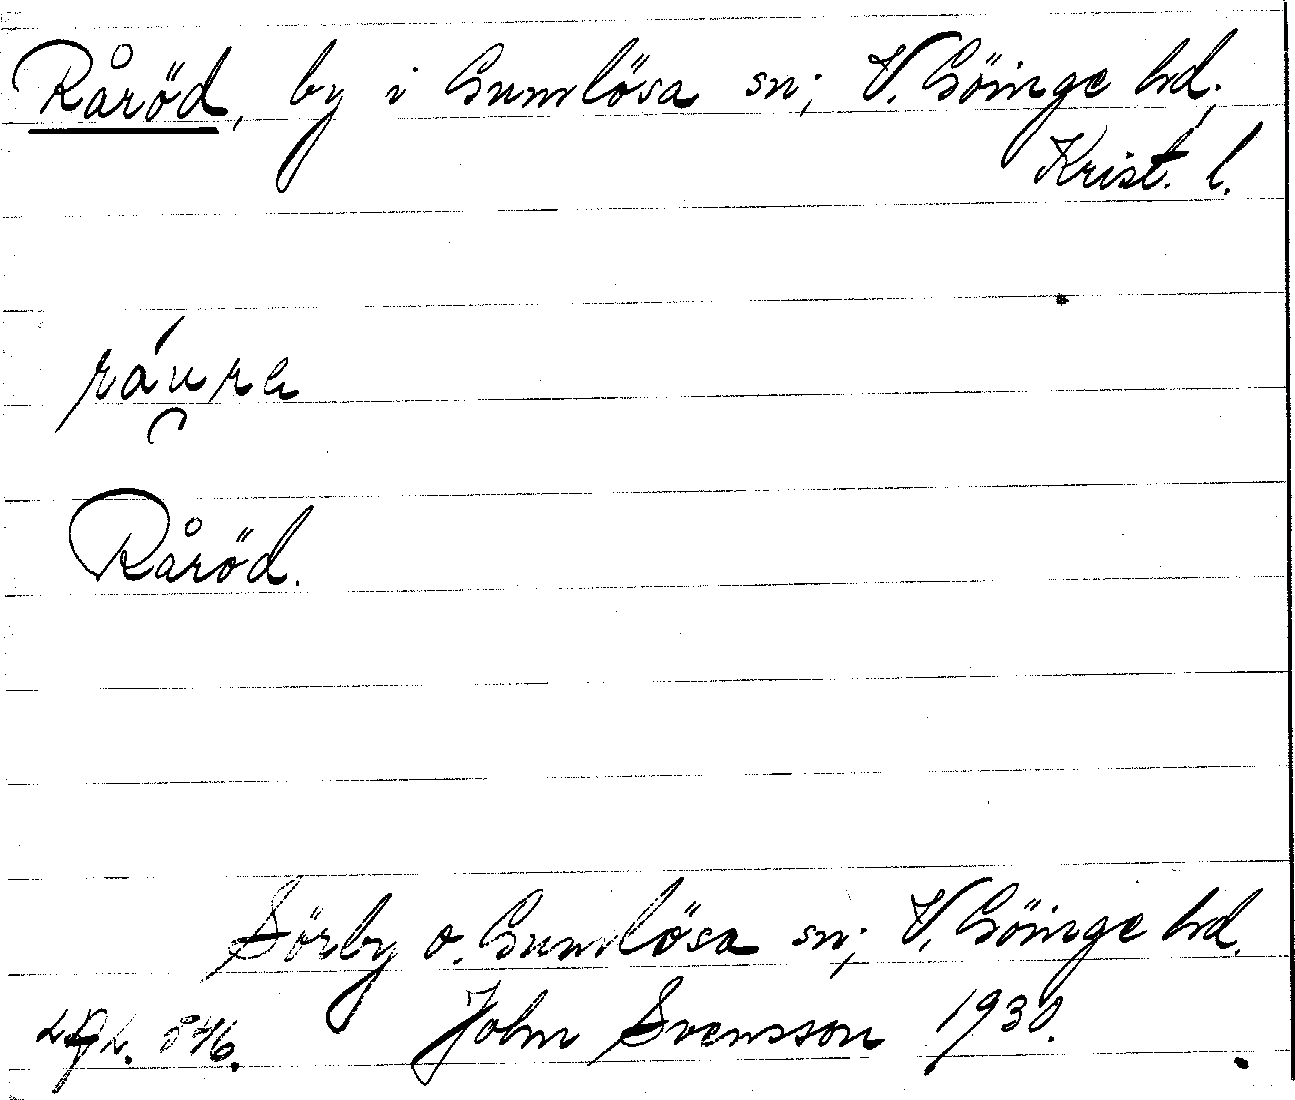 Råröd, by i Gumlösa sn; V. Göinge hd,
Krist. l.
Råröd.
Sörby o. Gumlösa sn; V. Göinge hd.
John Svensson 1930.